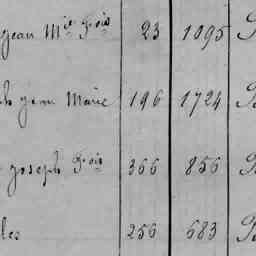 jean M.ie F.ois 23 1095
jean Marie 196 1724
joseph F.ois 366 856
256 683